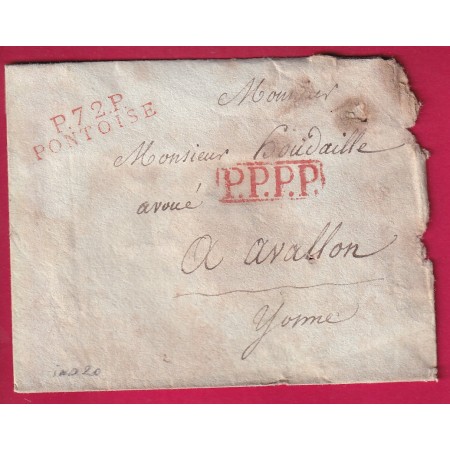 P.72.P.
PONTOISE
Monsieur
Monsieur Houdaille
avoué
P.P.P.P.
A avallon
Yonne